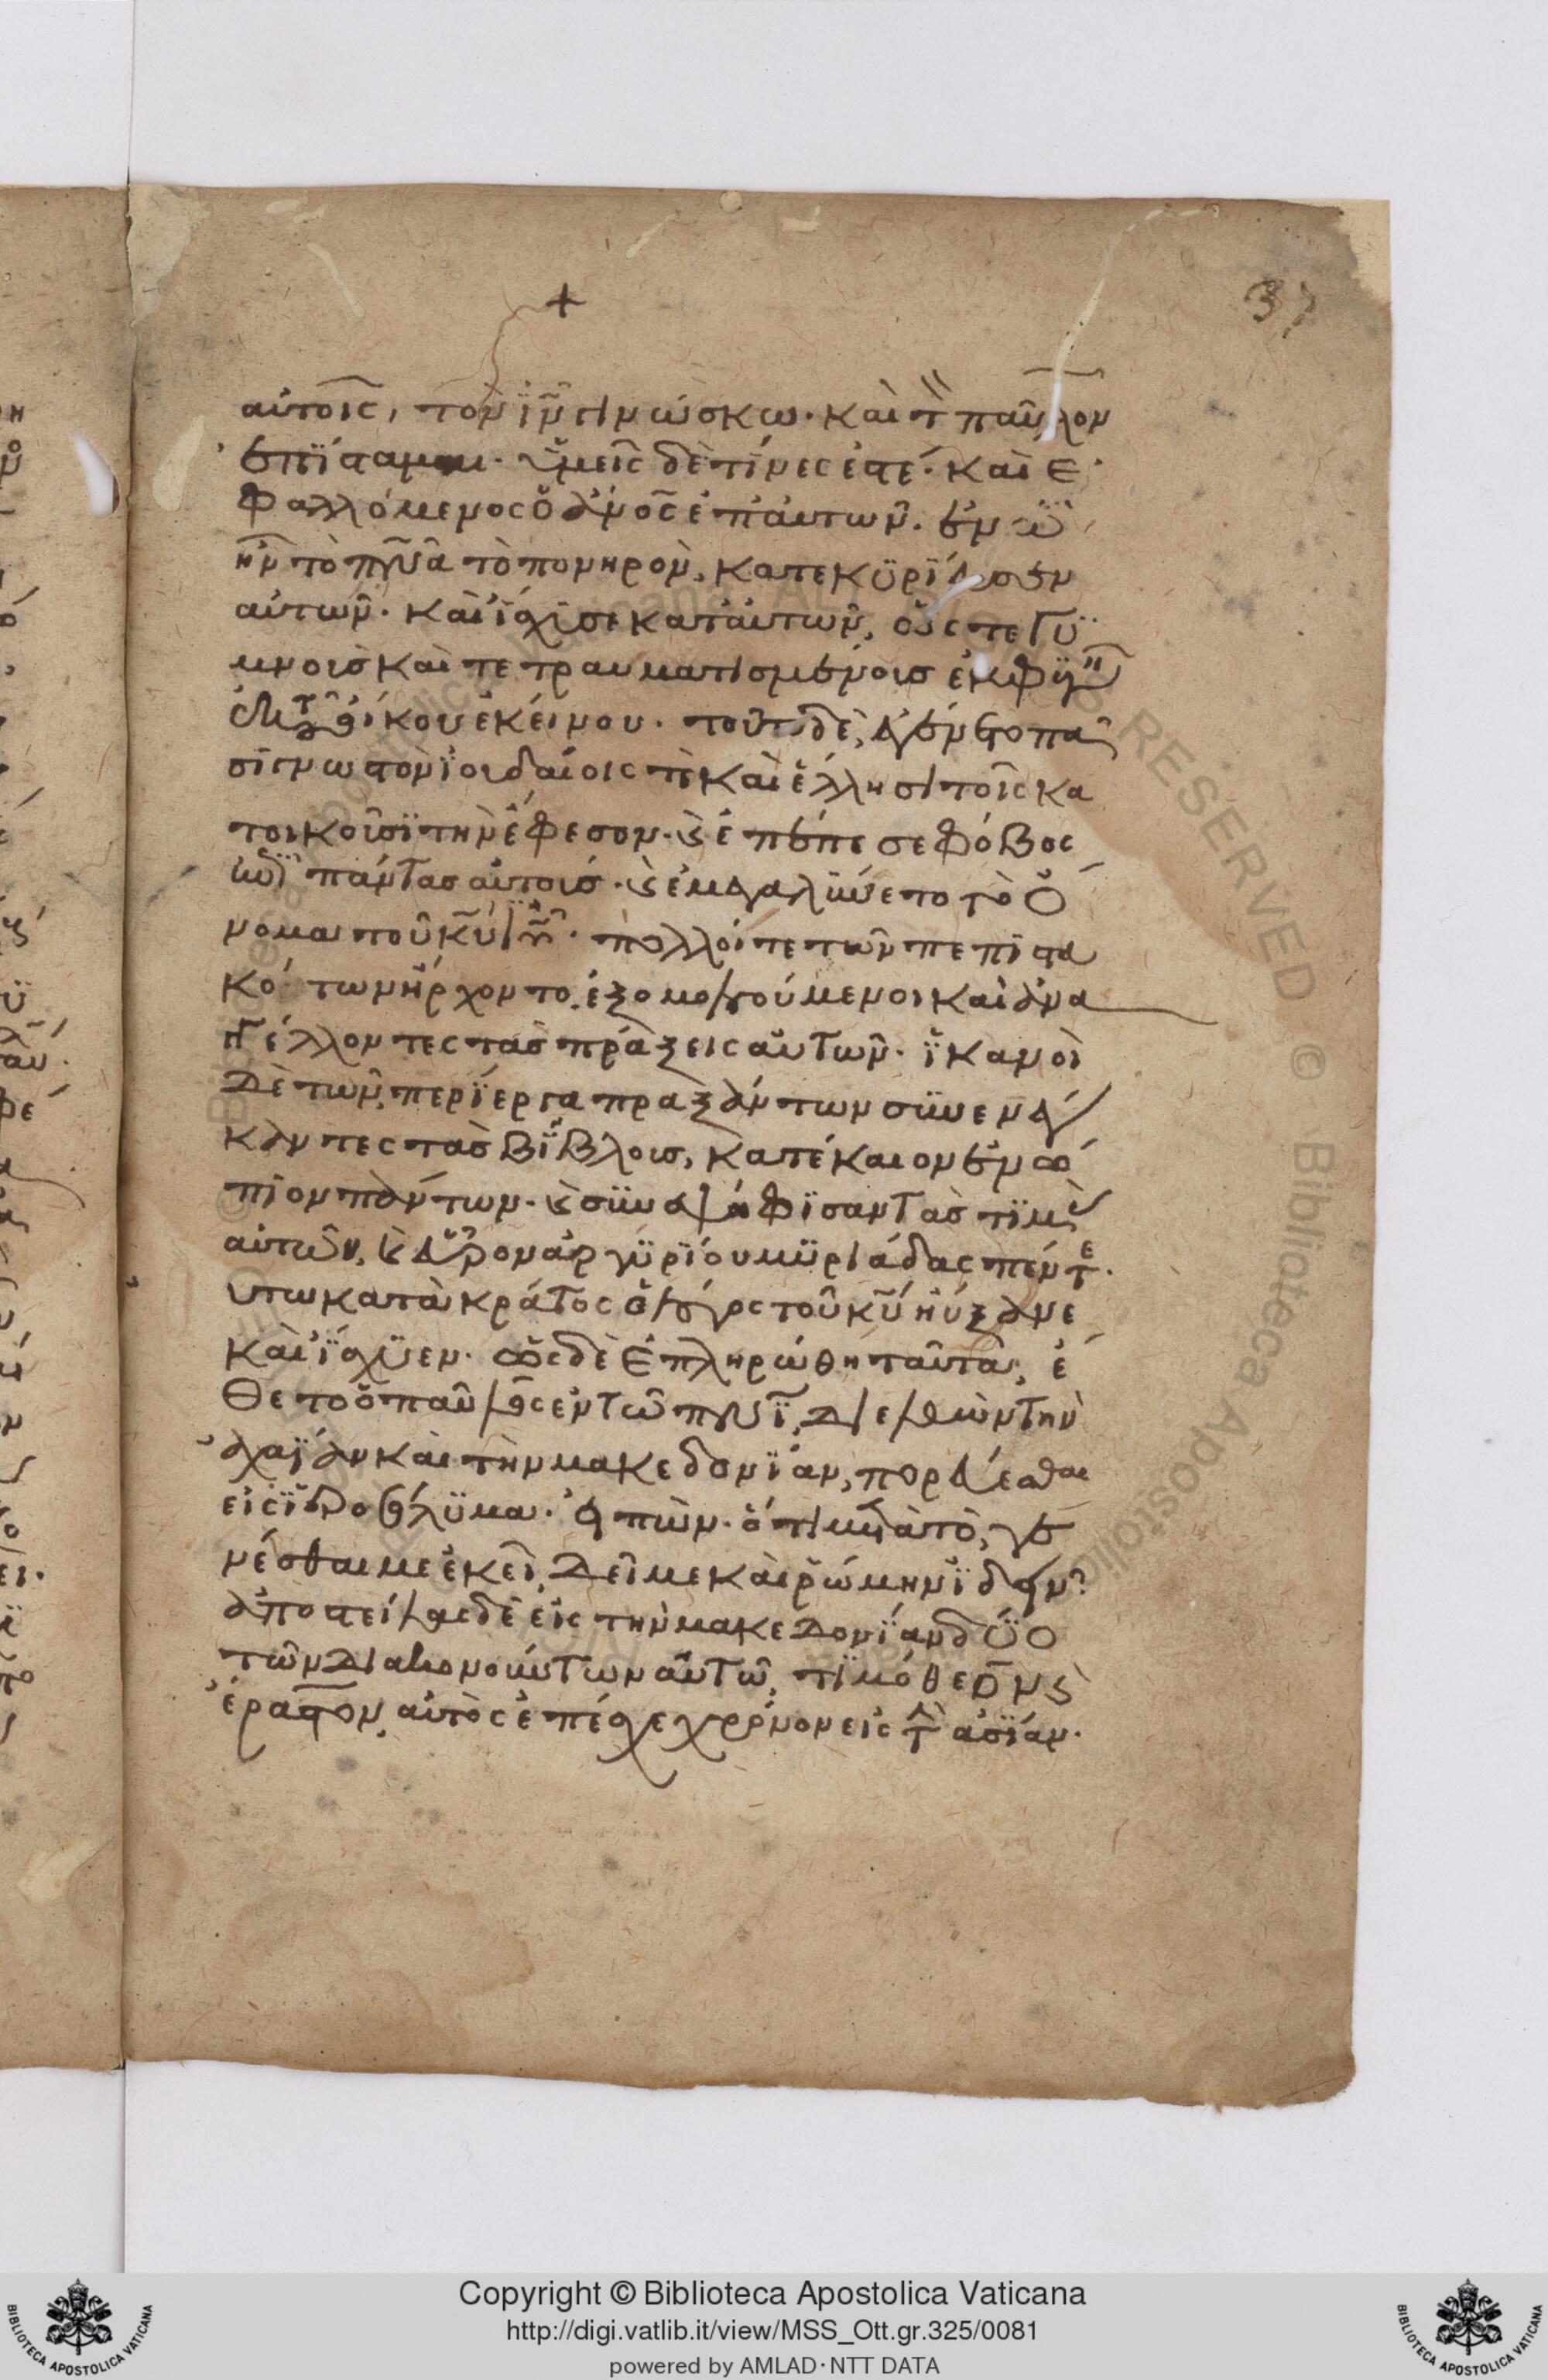 37
+
αὐτοῖς, τὸν ἰν γινώσκω. καὶ τὸν παῦλον
ἐπίσταμαι. ὑμεῖς δὲ τίνες ἐστέ. καὶ ἐ
φαλλόμενος ὁ ἄνος ἐπ' αὐτῶν. ἐν ὧ
ἦν τὸ πνα τὸ πονηρὸν, κατεκυρίευσεν
αὐτῶν. καὶ ἴσχισε κατ' αὐτῶν, ὥστε γυ
μνοισ καὶ τετραυματισμένοισ ἐκφυγῆν
ἐκ τοῦ οἴκου ἐκείνου. τοῦτο δὲ, ἐγένετο πᾶ
σι γνωστὸν ἰουδαίοις τὲ καὶ ἕλλησι τοῖς κα
τοικοῦσϊ τὴν ἔφεσον. καὶ ἐπέπεσε φόβος
ἐπὶ πάντασ αὐτοισ. καὶ ἐμεγαλύνετο τὸ ὄ
νομα τοῦ κυ ιυ. πολλοί τε τῶν πεπιστευ
κό των ἤρχοντο, ἐξομολογούμενοι καὶ ἀνα
γγέλλοντες τὰσ πράξεις αὐτῶν. ἴκανοὶ
δὲ τῶν περίεργα πραξάντων συνενέγ
καντες τὰσ βίβλουσ, κατέκαιον ἐνώ
πιον πάντων. καὶ συνεψήφισαν τὰσ τιμὰς
αὐτῶν, καὶ εὗρον ἀργυρίου μυριάδας πέντε.
οὕτω κατὰ κράτος ὁ λόγος τοῦ κυ ηὔξανε
καὶ ἴσχυεν. ὡς δὲ ἐπληρώθη ταῦτα, ἔ
θετο ὁ παῦλος ἐν τῶ πνι, διελθὼν τὴν
ἀχαΐαν καὶ τὴν μακεδονίαν, πορεύεσθαι
εἰς ἱεροσόλυμα. εἰπὼν. ὅτι μετὰ τὸ, γε
νέσθαι με ἐκεῖ, δεῖ με καὶ ῥώμην ἰδεῖν.
ἀποστείλας δὲ εἰς τὴν μακεδονίαν δύο
τῶν διακονούντων αὐτῶ, τιμόθεον καὶ
ἔραστον, αὐτὸς ἐπέσχε χρόνον εἰς τὴν ἀσίαν.
Copyright © Biblioteca Apostolica Vaticana
http://digi.vatlib.it/view/MSS_Ott.gr.325/0081
powered by AMLAD·NTT DATA